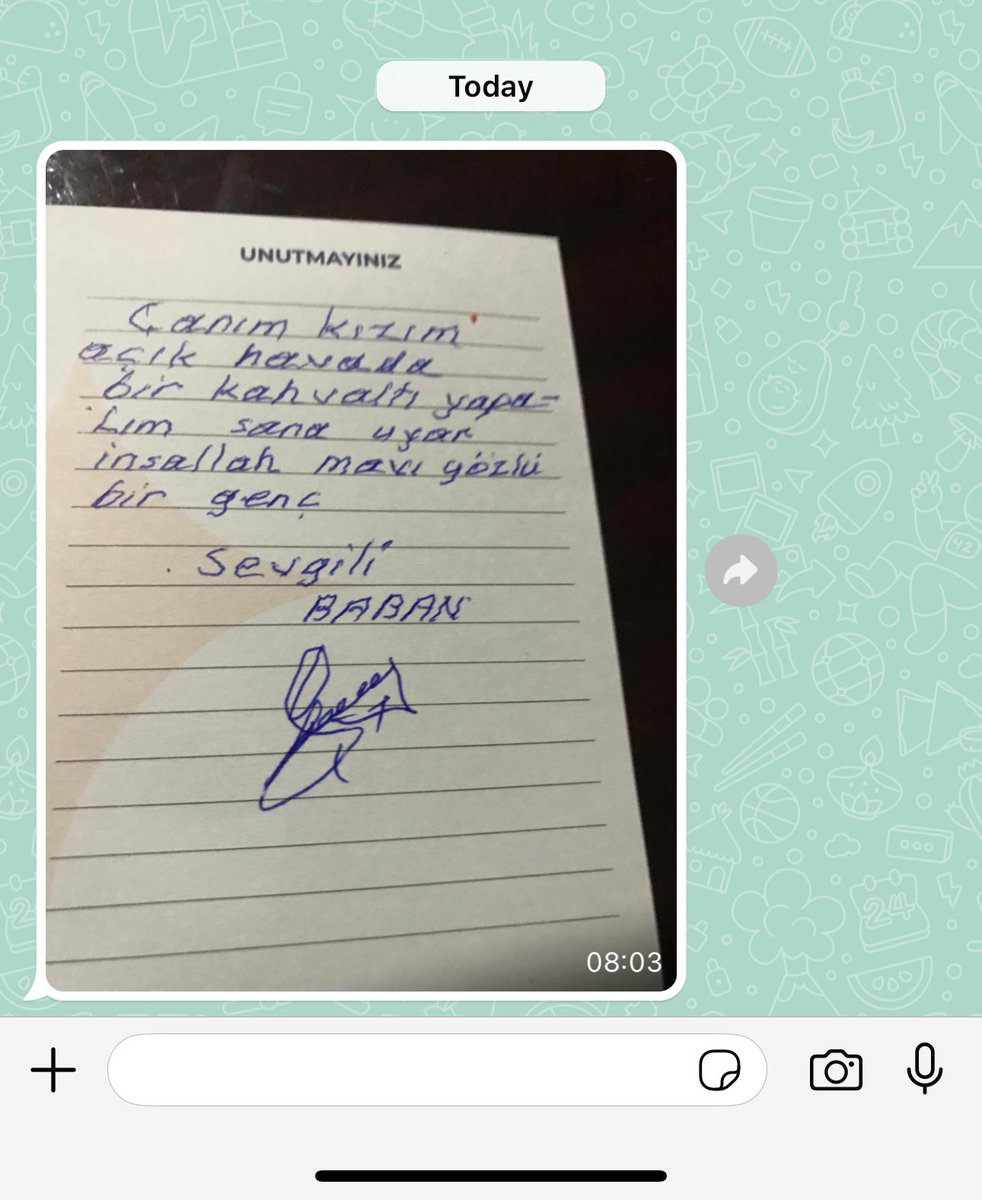 Today
UNUTMAYINIZ
Canım kızım
açık havada
bir kahvaltı yapa-
lım sana uyar
insallah mavi gözlü
bir genç
Sevgili
BABAN
08:03